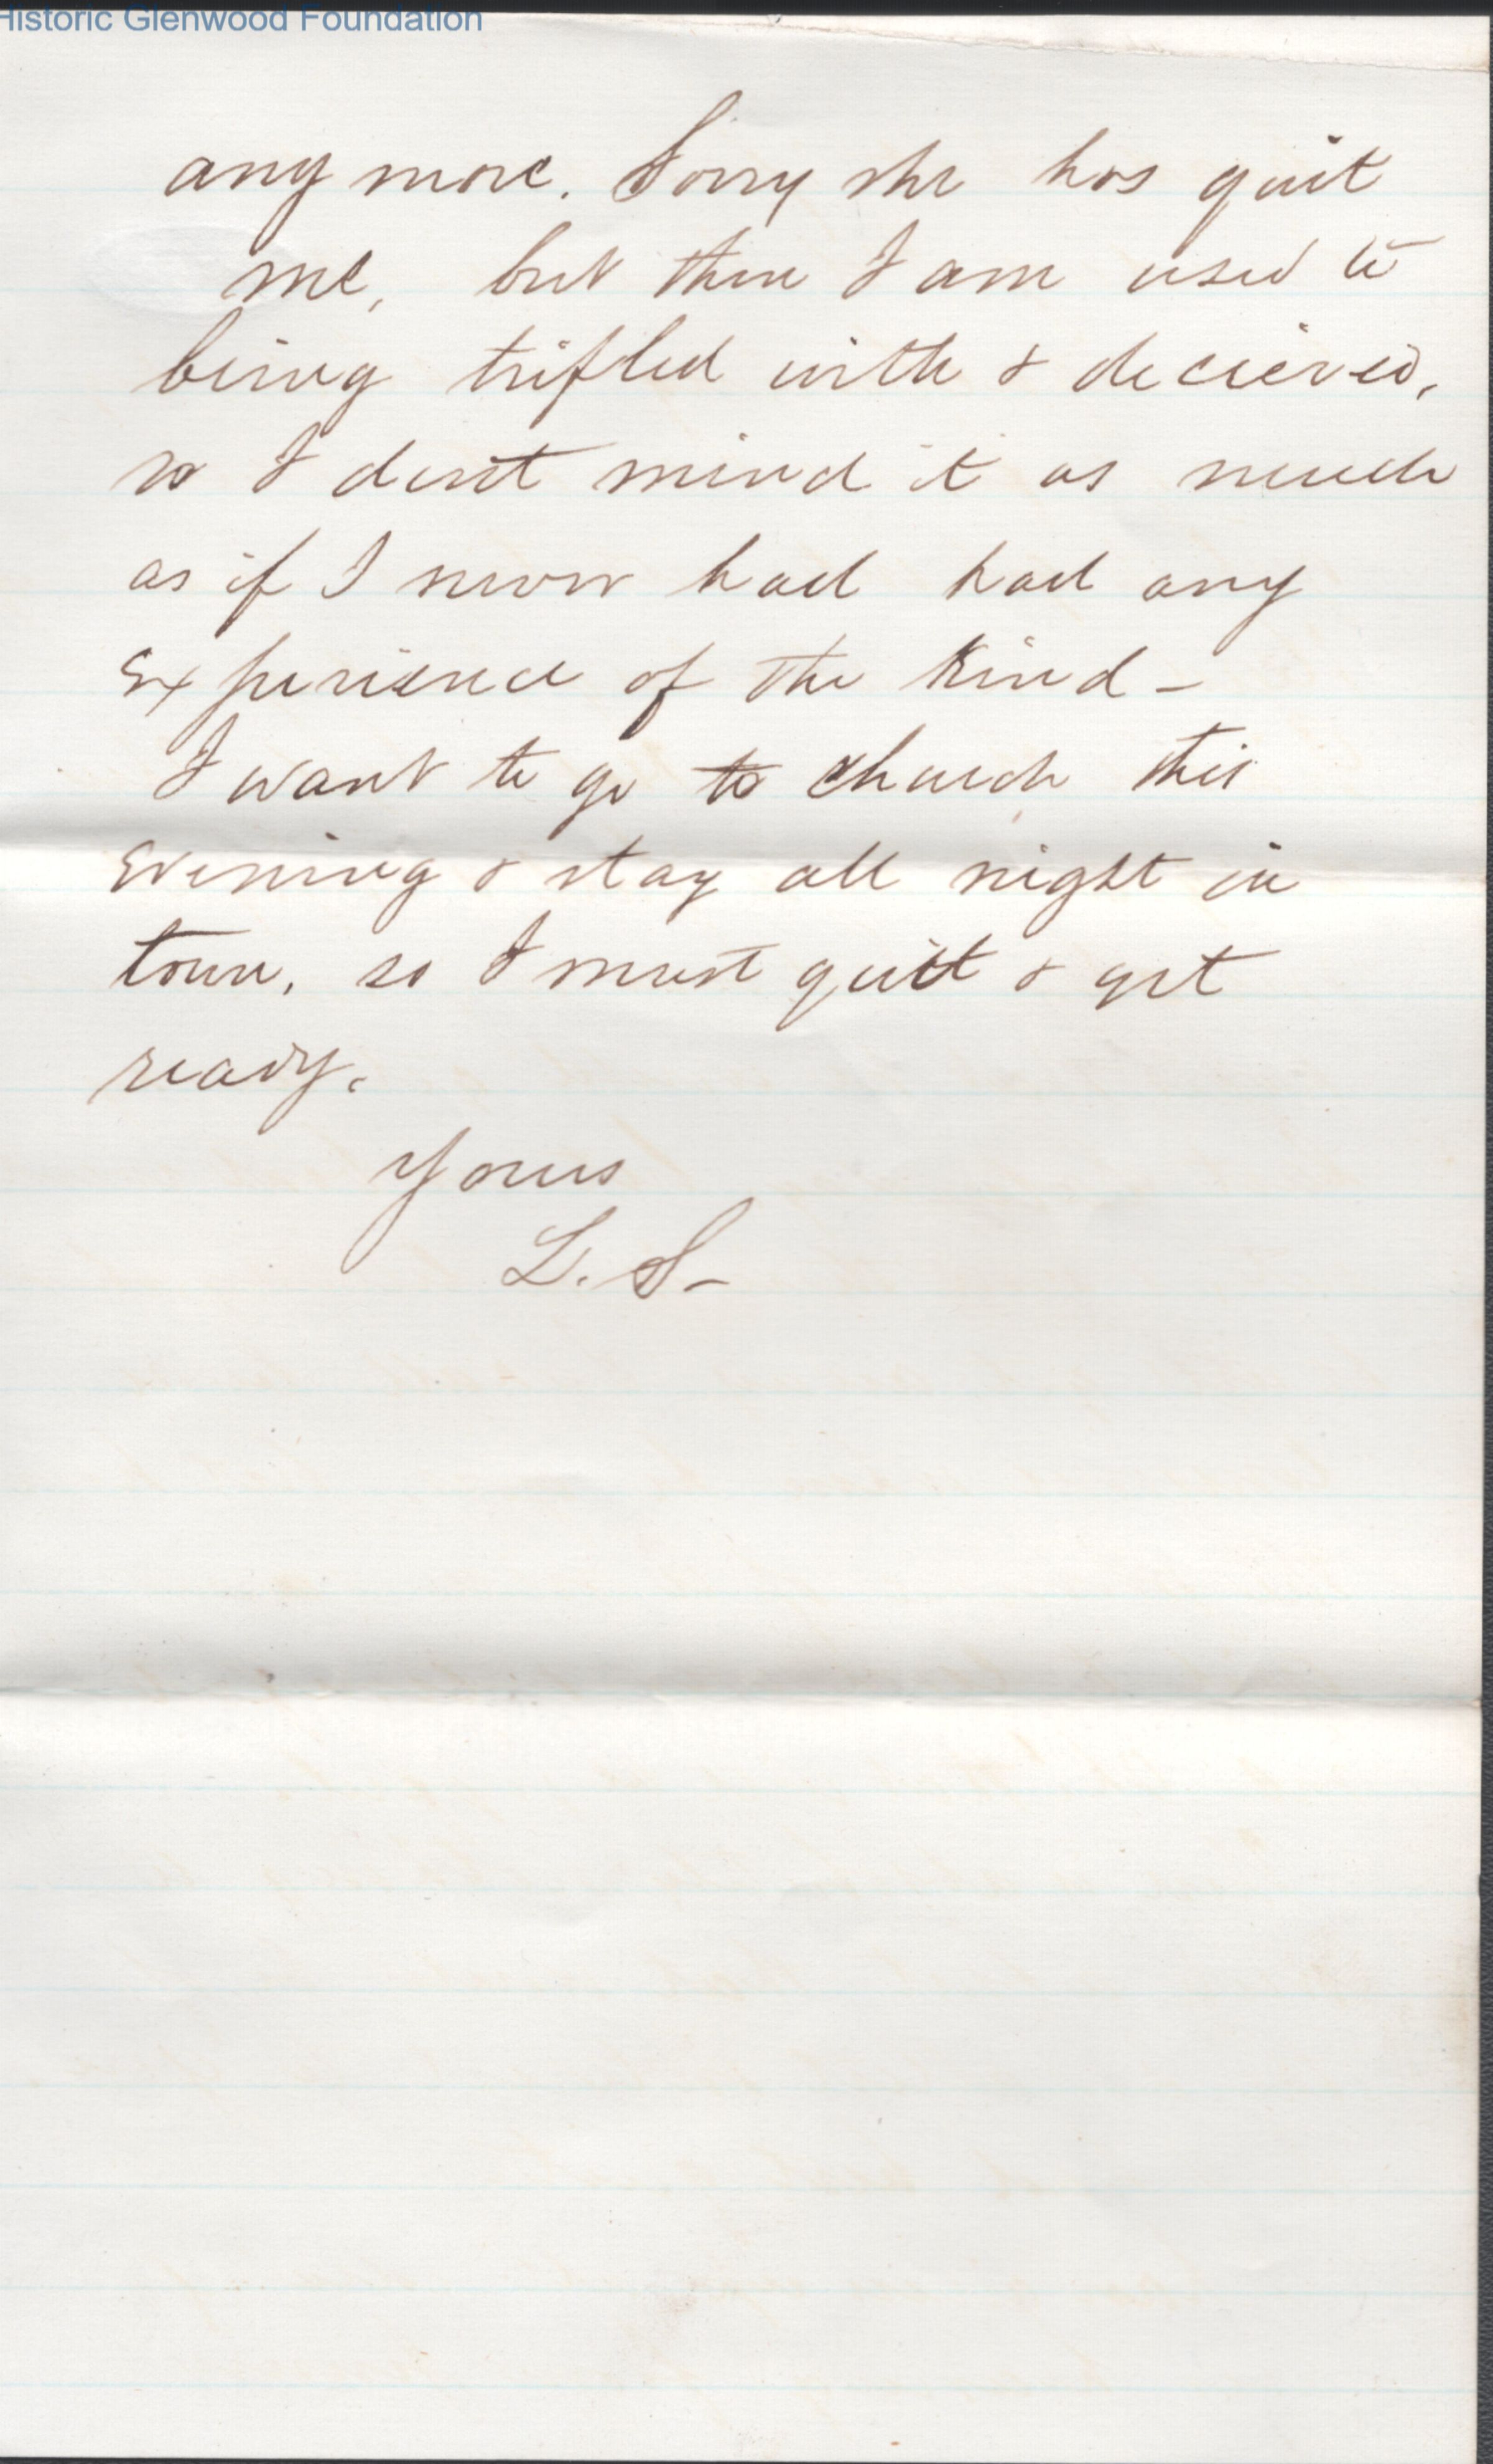 Historic Glenwood Foundation
any more. Sorry she has quit
me, but then I am used to
being trifled with & decieved,
so I dont mind it as much
as if I never had had any
Experience of the kind -
I want to go to church this
Evening & stay all night in
town, so I must quit & get
ready.
Yours
L. S-